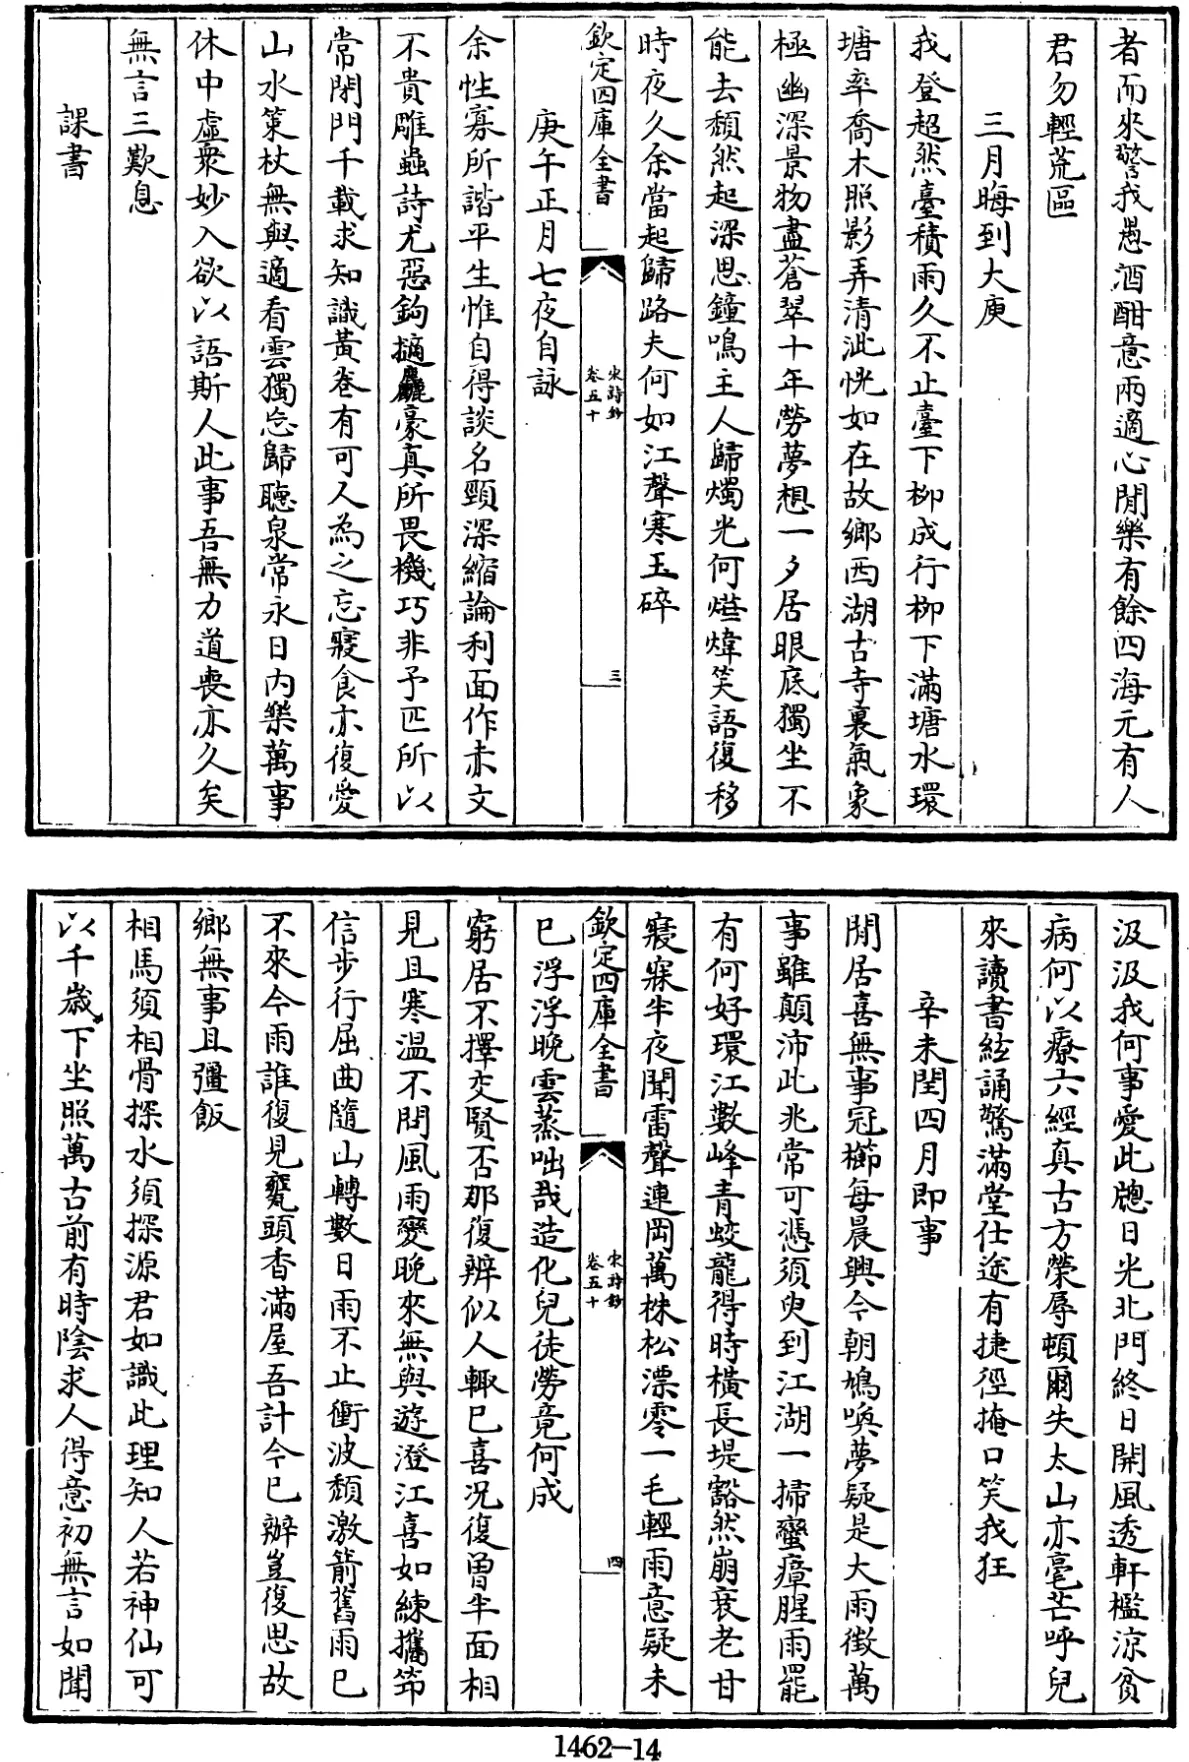 者而來警我愚酒酣意兩適心閒樂有餘四海元有人
君勿輕荒區
三月晦到大庾
我登超然臺積雨久不止臺下柳成行柳下滿塘水環
塘率喬木照影弄清泚恍如在故鄉西湖古寺裏氣象
極幽深景物盡蒼翠十年勞夢想一夕居眼底獨坐不
能去頹然起深思鐘鳴主人歸燭光何煃煒笑語復移
時夜久余當起歸路夫何如江聲寒玉碎
欽定四庫全書
宋詩鈔
卷五十
三
庚午正月七夜自詠
余性寡所諧平生惟自得談名頸深縮論利面作赤文
不貴雕蟲詩尤惡鉤擿麤豪真所畏機巧非予匹所以
常閉門千載求知識黃卷有可人為之忘寢食亦復愛
山水策杖無與適看雲獨忘歸聽泉常永日內樂萬事
休中虛衆妙入欲以語斯人此事吾無力道喪亦久矣
無言三歎息
課書
汲汲我何事愛此牕日光北門終日開風透軒檻涼貧
病何以療六經真古方榮辱頓爾失太山亦毫芒呼兒
來讀書絃誦驚滿堂仕途有捷徑掩口笑我狂
辛未閏四月即事
閒居喜無事冠櫛每晨興今朝鳩喚夢疑是大雨徵萬
事雖顛沛此兆常可憑須臾到江湖一掃蠻瘴腥雨罷
有何好環江數峰青蛟龍得時橫長堤豁然崩衰老甘
寢寐半夜聞雷聲連岡萬株松漂零一毛輕雨意疑未
欽定四庫全書
宋詩鈔
卷五十
四
已浮浮晚雲蒸咄哉造化兒徒勞竟何成
窮居不擇交賢否那復辨似人輒已喜況復曾半面相
見且寒溫不問風雨變晚來無與遊澄江喜如練攜筇
信步行屈曲隨山轉數日雨不止衝波頹激箭舊雨已
不來今雨誰復見甕頭香滿屋吾計今已辦豈復思故
鄉無事且彊飯
相馬須相骨探水須探源君如識此理知人若神仙可
以千歲下坐照萬古前有時陰求人得意初無言如聞
1462—14